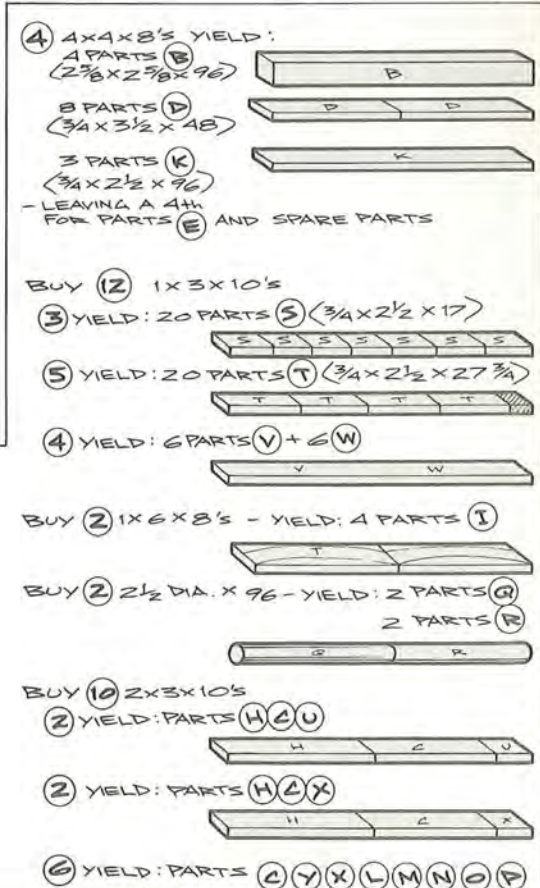 ④ 4x4x8's YIELD:
4 PARTS Ⓑ
(2 5/8 x 2 5/8 x 96)
B
8 PARTS Ⓓ
(3/4 x 3 1/2 x 48)
D D
3 PARTS Ⓚ
(3/4 x 2 1/2 x 96)
K
- LEAVING A 4th
FOR PARTS Ⓔ AND SPARE PARTS
BUY ⑫ 1x3x10's
③ YIELD: 20 PARTS Ⓢ (3/4 x 2 1/2 x 17)
S S S S S S S
⑤ YIELD: 20 PARTS Ⓣ (3/4 x 2 1/2 x 27 3/4)
T T T T
④ YIELD: 6 PARTS Ⓥ + 6 Ⓦ
V W
BUY ② 1x6x8's - YIELD: 4 PARTS Ⓘ
I
BUY ② 2 1/2 DIA. x 96 - YIELD: 2 PARTS Ⓠ
2 PARTS Ⓡ
Q R
BUY ⑩ 2x3x10's
② YIELD: PARTS Ⓗ Ⓒ Ⓤ
H C U
② YIELD: PARTS Ⓗ Ⓒ Ⓧ
H C X
⑥ YIELD: PARTS Ⓒ Ⓨ Ⓧ Ⓛ Ⓜ Ⓝ Ⓞ Ⓟ